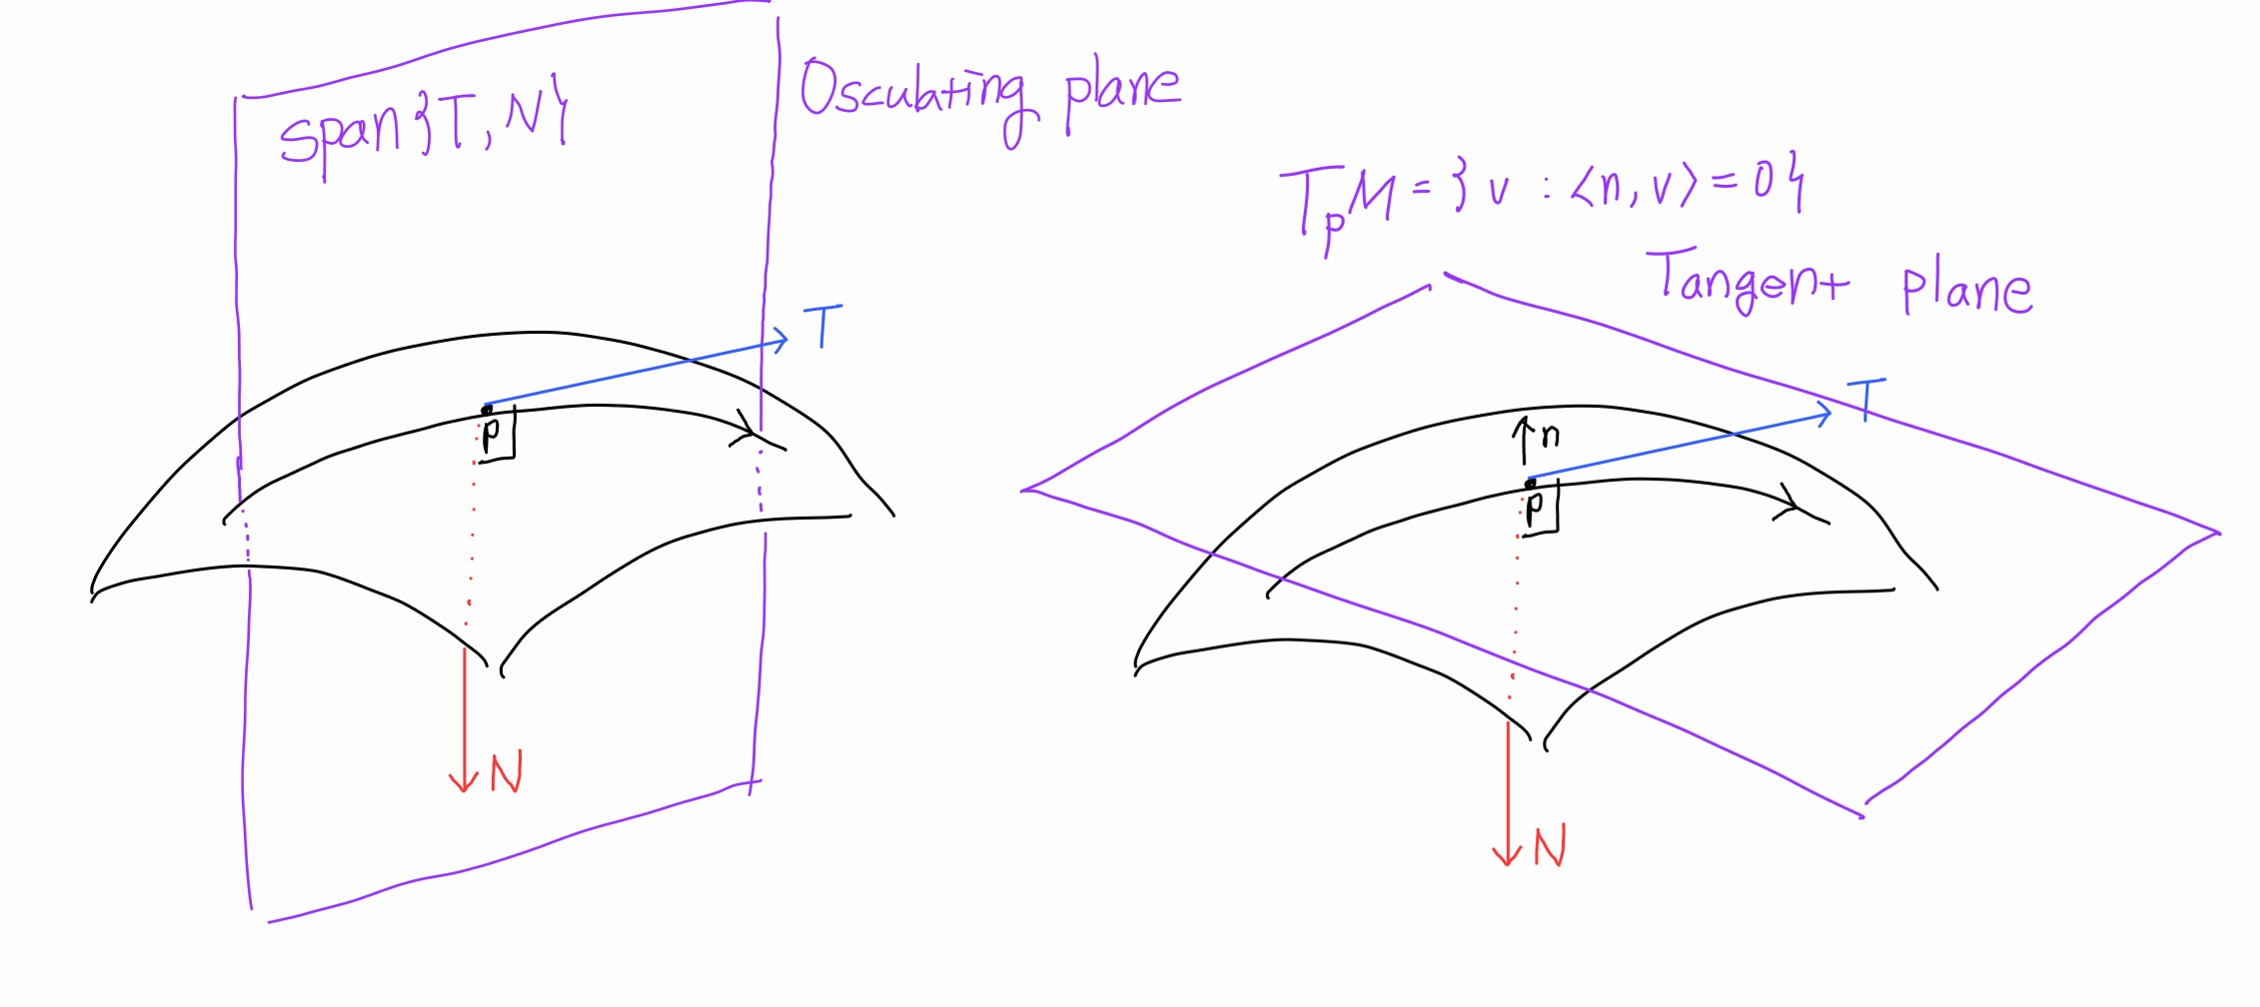 span{T, N}
Osculating plane
T
p
N
TpM = { v : <n, v> = 0 }
Tangent plane
T
n
p
N